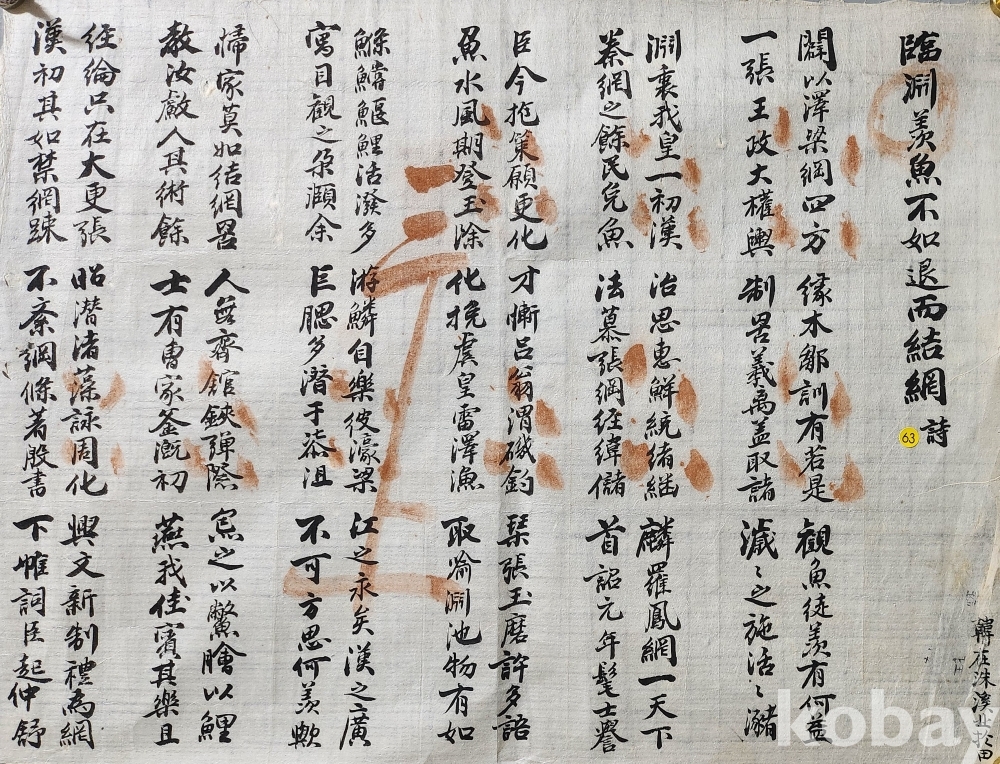 臨淵羨魚不如退而結網 詩
63
闢以澤梁綱四方
一張王政大權輿
淵衷我皇一初漢
秦網之餘民免魚
臣今抱策願更化
魚水風期登玉除
鰷鱨鰋鯉活潑多
寓目觀之朶灝余
歸家莫如結網罟
敎汝獻人其術餘
經綸只在大更張
漢初其如禁網踈
緣木鄒訓有若是
制罟義禹盖取諸
治思惠鮮統緖繼
法慕張綱經緯儲
才慚呂翁渭磯釣
化挽虞皇雷澤漁
游鱗自樂彼濠梁
巨腮多潛于柒沮
人無齊館鋏彈際
士有曺家釜漑初
昭潛渚藻詠周化
不紊綱條著殷書
觀魚徒羨有何益
濊〻之施活〻瀦
麟羅鳳網一天下
首詔元年髦士譽
琹張玉磨許多語
取喩淵池物有如
江之永矣漢之廣
不可方思何羨歟
烹之以鱉膾以鯉
燕我佳賓其樂且
興文新制禮爲網
下帷詞臣起仲舒
三上
kobay